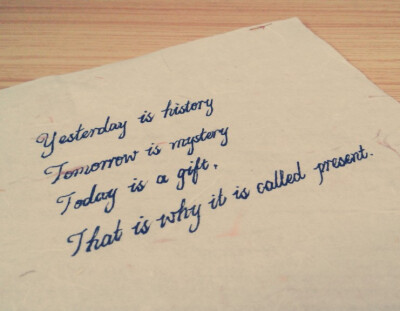 Yesterday is history
Tomorrow is mystery
Today is a gift,
That is why it is called present.